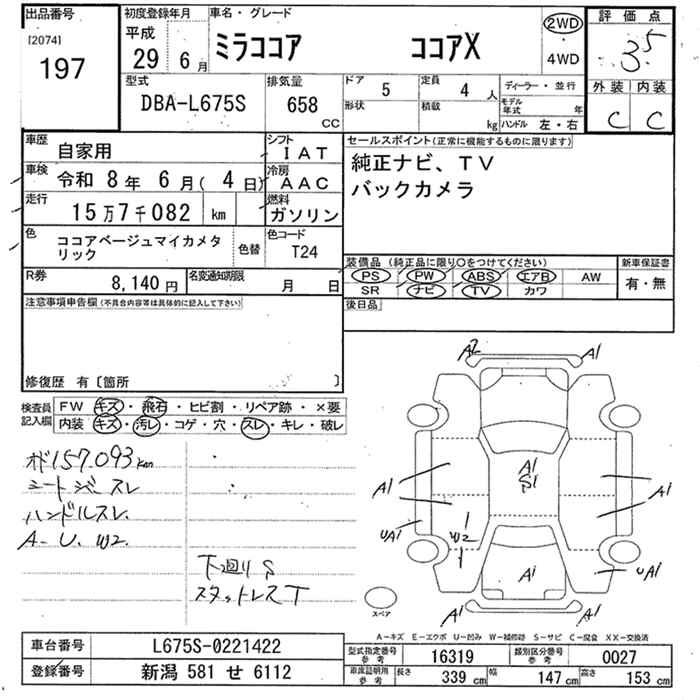 出品番号
[2074]
197
初度登録年月
平成
29 6月
車名・グレード
ミラココア ココアX
2WD
4WD
評価点
3.5
外装 内装
C C
型式
DBA-L675S
排気量
658 CC
ドア
5
形状
定員
4 人
積載
kg
ディーラー・並行
モデル年式 年
ハンドル 左・右
車歴
自家用
シフト
IAT
車検
令和 8年 6月( 4日)
冷房
AAC
走行
15万7千082 km
燃料
ガソリン
色
ココアベージュマイカメタリック
色替
色コード
T24
R券
8,140円
名変通知期限
月 日
セールスポイント(正常に機能するものに限ります)
純正ナビ、TV
バックカメラ
装備品(純正品に限り○をつけてください)
PS PW ABS エアB AW
SR ナビ TV カワ
新車保証書
有・無
後日品
注意事項申告欄(不具合内容等は具体的に記入して下さい)
修復歴 有〔箇所 〕
検査員記入欄
FW キズ・飛石・ヒビ割・リペア跡・×要
内装 キズ・汚レ・コゲ・穴・スレ・キレ・破レ
157,093km
シートジミ スレ
ハンドルスレ
A-U、W2
下廻りS
スタットレスT
A2 A1
A1
S1
A1 A1
UA1 W2
A1 UA1
A1 A1
スペア
A-キズ E-エクボ U-凹み W-補修跡 S-サビ C-腐食 XX-交換済
車台番号
L675S-0221422
型式指定番号参考
16319
類別区分番号参考
0027
登録番号
新潟 581 せ 6112
車庫証明用参考
長さ 339 cm
幅 147 cm
高さ 153 cm